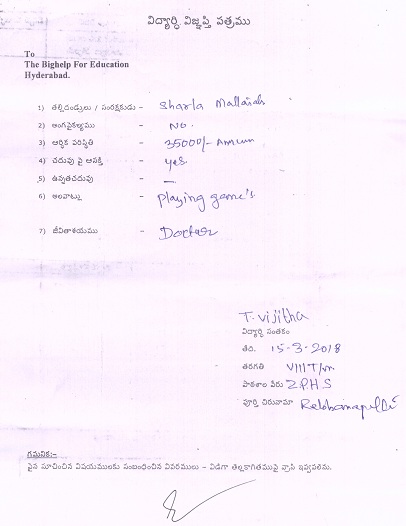 విద్యార్థి విజ్ఞప్తి పత్రము
To
The Bighelp For Education
Hyderabad.
1) తల్లిదండ్రులు / సంరక్షకుడు - Sharla Mallaiah
2) అంగవైకల్యము - No.
3) ఆర్థిక పరిస్థితి - 35000/- Annum
4) చదువు పై ఆసక్తి - yes.
5) ఉన్నతచదువు - —
6) అలవాట్లు - playing game's
7) జీవితాశయము - Doctor
T. vijitha
విద్యార్థి సంతకం
తేది. 15-3-2018
తరగతి VIII T/m.
పాఠశాల పేరు Z.P.H.S
పూర్తి చిరునామా
గమనిక:-
పైన సూచించిన విషయములకు సంబంధించిన వివరములు - విడిగా తెల్లకాగితముపై వ్రాసి ఇవ్వవలెను.